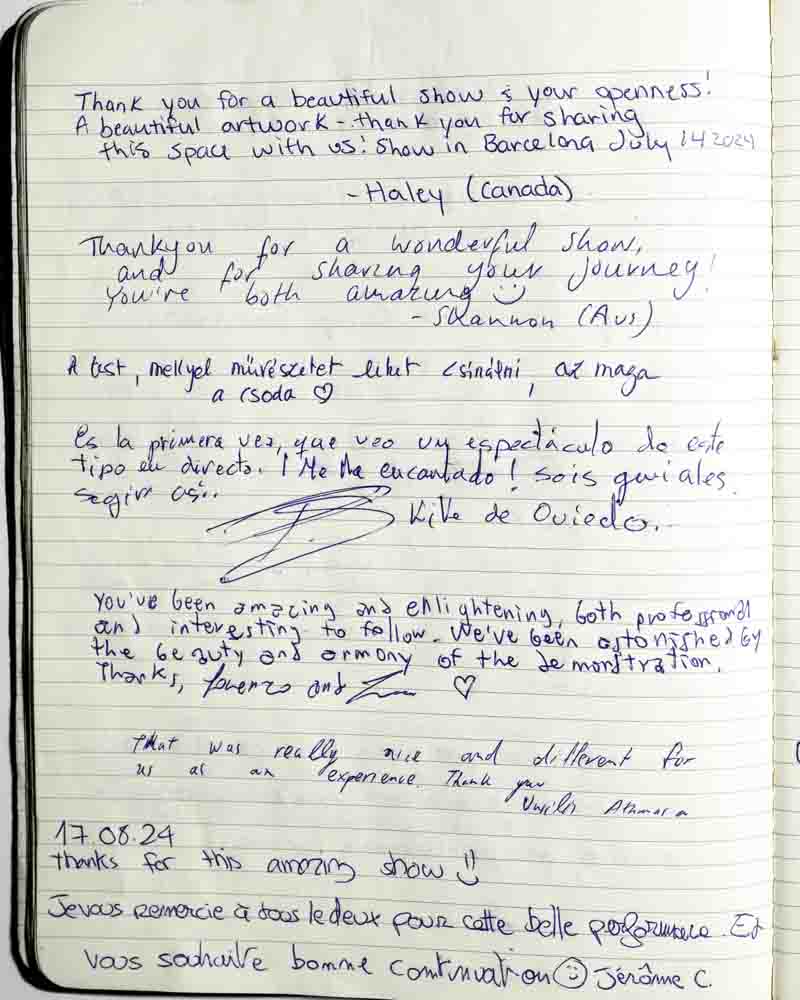 Thank you for a beautiful show & your openness!
A beautiful artwork - thank you for sharing
this space with us! Show in Barcelona July 14 2024
- Haley (Canada)
Thankyou for a wonderful show,
and for sharing your journey!
You're both amazing
- Shannon (Aus)
A test, mellyel művészetet lehet csinálni, az maga
a csoda ♡
Es la primera vez, que veo un espectáculo de este
tipo en directo. ¡Me ha encantado! Sois geniales.
segir así..
Kike de Oviedo.
You've been amazing and enlightening, both professional
and interesting to follow. We've been astonished by
the beauty and armony of the demonstration.
Thanks, Lorenzo and ♡
That was really nice and different for
us as an experience. Thank you
17.08.24
Thanks for this amazing show
Je vous remercie à tous le deux pour cette belle performance. Et
vous souhaite bonne continuation ☺ Jérôme C.